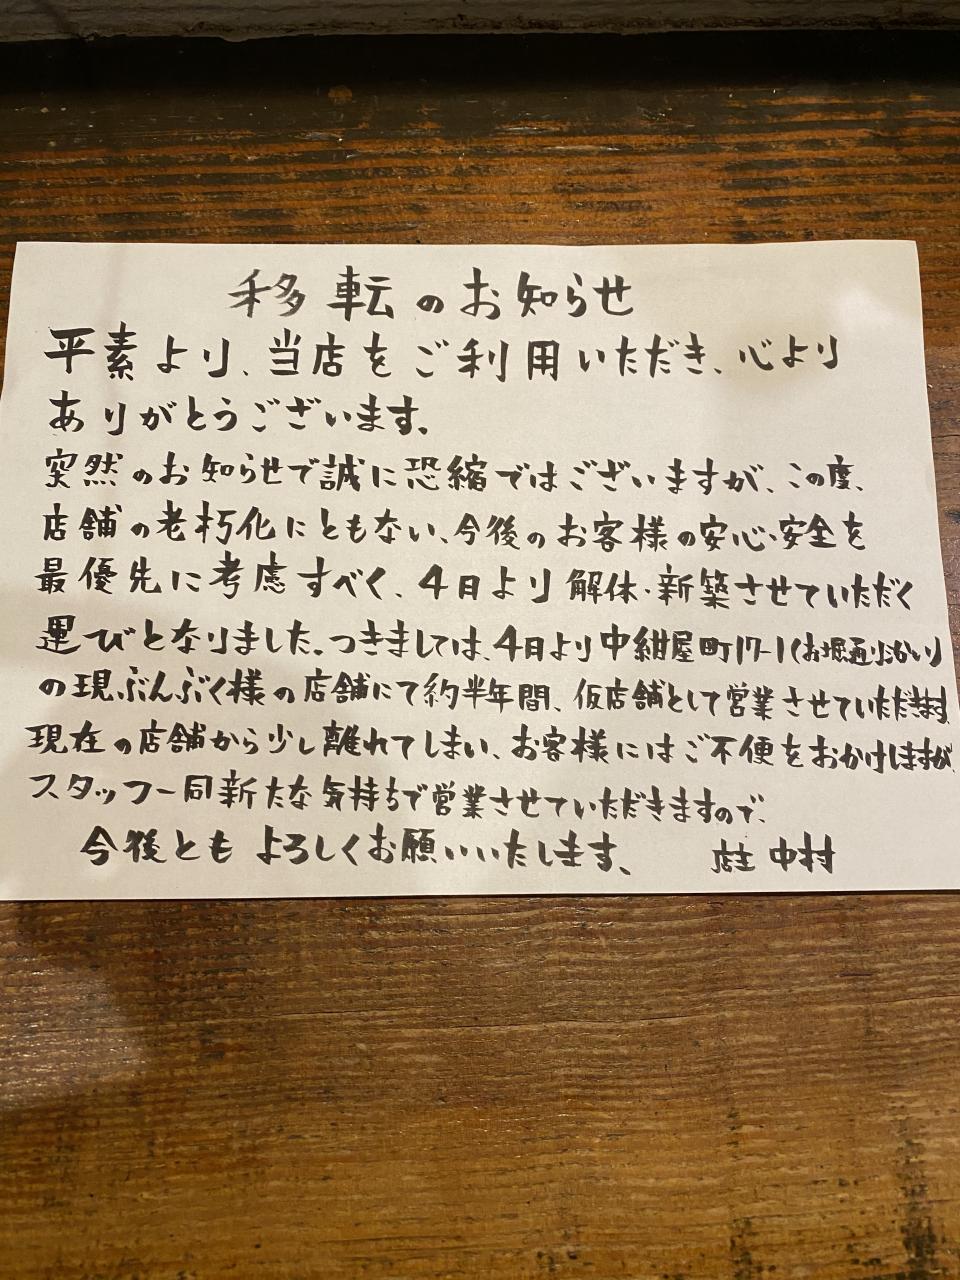 移転のお知らせ
平素より、当店をご利用いただき、心より
ありがとうございます。
突然のお知らせで誠に恐縮ではございますが、この度、
店舗の老朽化にともない、今後のお客様の安心・安全を
最優先に考慮すべく、4日より解体・新築させていただく
運びとなりました。つきましては、4日より中紺屋町17-1(お堀通り沿い)
の現ぶんぶく様の店舗にて約半年間、仮店舗として営業させていただきます
現在の店舗から少し離れてしまい、お客様にはご不便をおかけしますが
スタッフ一同新たな気持ちで営業させていただきますので、
今後ともよろしくお願いいたします、 店主 中村